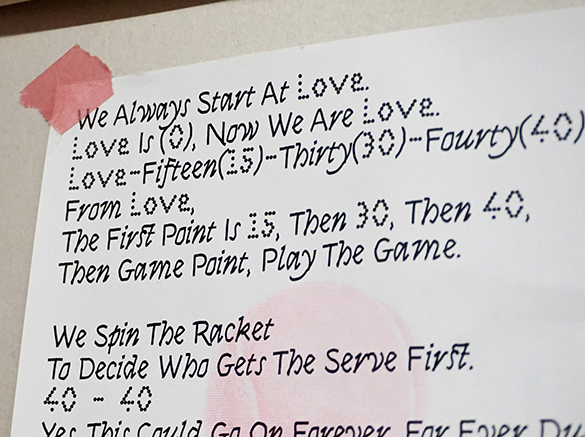 We Always Start At Love.
Love Is (0), Now We Are Love.
Love-Fifteen(15)-Thirty(30)-Fourty(40)
From Love,
The First Point Is 15, Then 30, Then 40,
Then Game Point, Play The Game.
We Spin The Racket
To Decide Who Gets The Serve First.
40 - 40
Yes This Could Go On Forever, For Ever